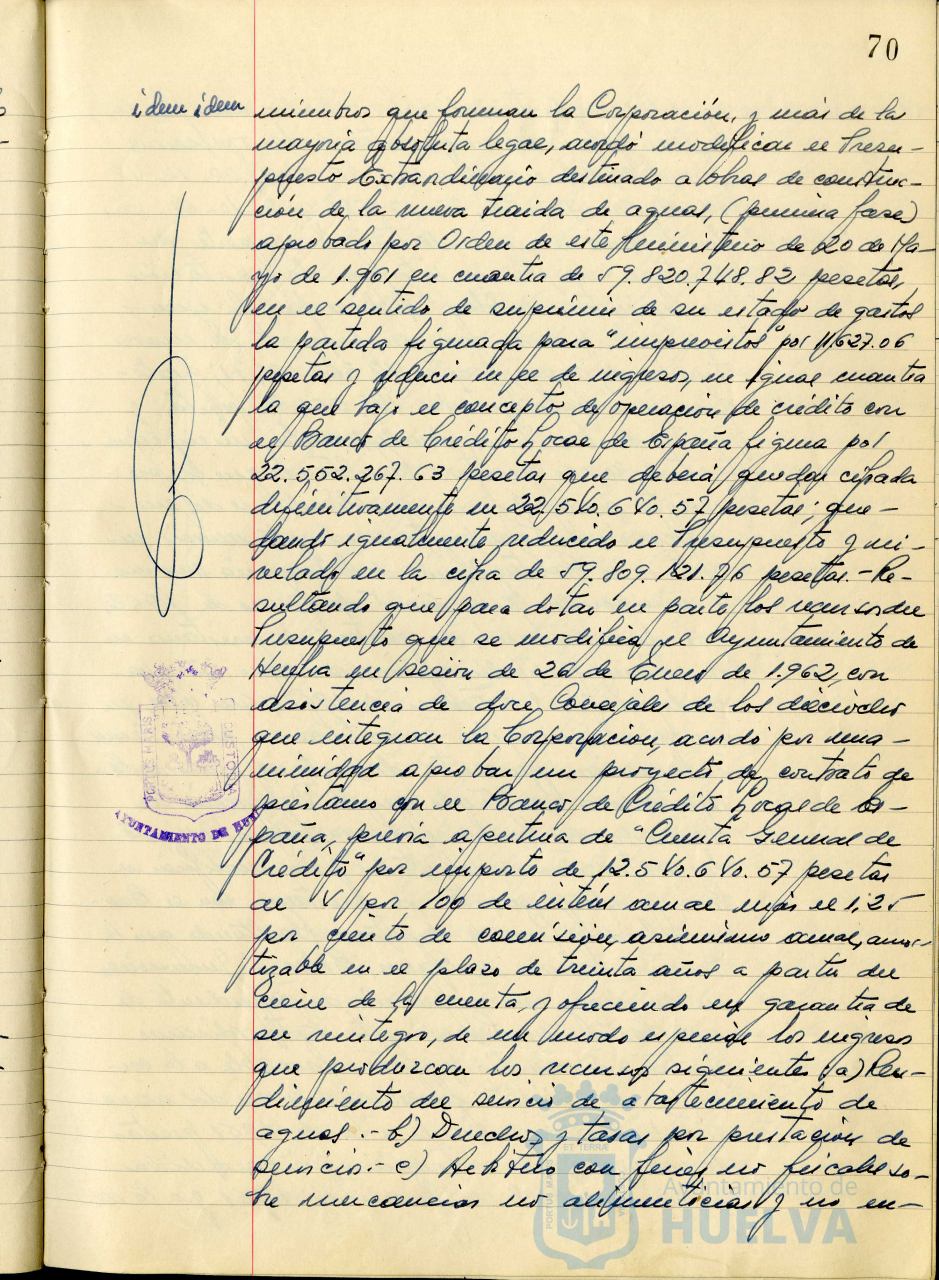 70
idem idem
miembros que forman la Corporación, y más de la
mayoría absoluta legal, acordó modificar el Presu-
puesto Extraordinario destinado a obras de construc-
ción de la nueva traida de aguas, (primera fase)
aprobado por Orden de este Ministerio de 20 de Ma-
yo de 1.961 en cuantia de 59.820.748.82 pesetas,
en el sentido de suprimir de su estado de gastos
la partida figurada para "imprevistos" por 11.627.06
pesetas y reducir en el de ingresos, en igual cuantia
la que bajo el concepto de operación de crédito con
el Banco de Crédito Local de España figura por
22.552.267.63 pesetas que deberá quedar cifrada
definitivamente en 22.540.640.57 pesetas; que-
dando igualmente reducido el Presupuesto y ni-
velado en la cifra de 59.809.121.76 pesetas.- Re-
sultando que para dotar en parte los recursos del
Presupuesto que se modifica, el Ayuntamiento de
Huelva en sesión de 26 de Enero de 1.962, con
asistencia de doce Concejales de los dieciocho
que integran la Corporación, acordó por una-
nimidad aprobar un proyecto de contrato de
préstamo con el Banco de Crédito Local de Es-
paña, previa apertura de "Cuenta General de
Crédito" por importe de 12.540.640.57 pesetas
al 4 por 100 de interés anual más el 1,25
por ciento de comisión, asimismo anual, amor-
tizable en el plazo de treinta años a partir del
cierre de la cuenta, y ofreciendo en garantia de
su reintegro, de un modo especial los ingresos
que produzcan los recursos siguientes: a) Ren-
dimiento del servicio de abastecimiento de
aguas.- b) Derechos y tasas por prestación de
servicios.- c) Arbitrio con fines no fiscales so-
bre mercancias no alimenticias y no en-
PORTUS MARIS
CUSTODIA
AYUNTAMIENTO DE HUEL
ET TERRA
PORTUS MA
Ayuntamiento de
HUELVA